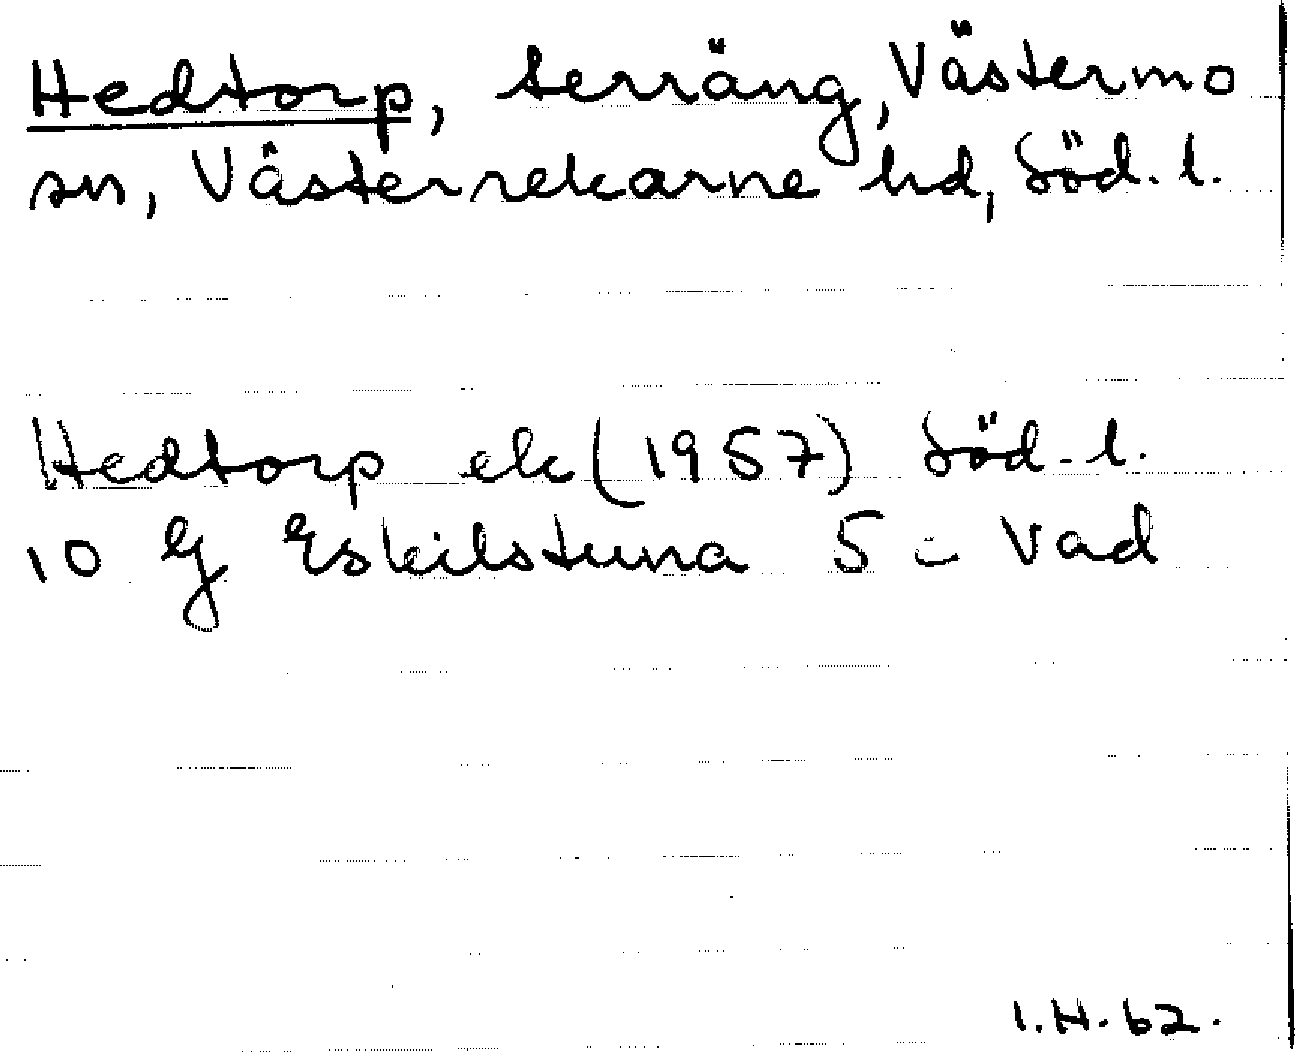 Hedtorp, terräng, Västermo
sn, Västerrekarne hd, Söd. l.
Hedtorp ek (1957) Söd. l.
10 G Eskilstuna S - Vad
I.H. 62.